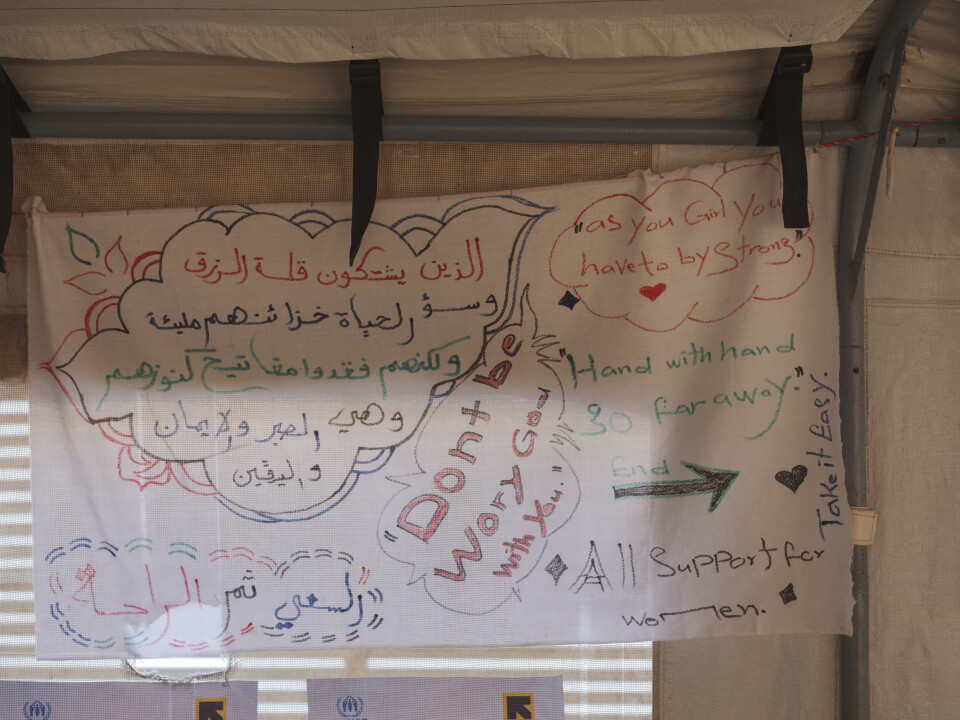 الذين يشتكون قلة الرزق
وسؤ الحياة خزائنهم مليئة
ولكنهم فقدوا مفاتيح كنوزهم
وهي الصبر والايمان
واليقين
"as you Girl you
have to by strong."
"Hand with hand
go far away."
End
Take it Easy.
"Dont be
Wory Gou
with you."
All Support for
women.
"السعي
ثم
الراحة"